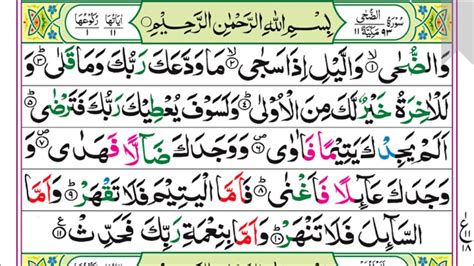 سُورَةُ الضُّحٰى مَكِّيَّةٌ ٩٣ ١١
بِسْمِ اللّٰهِ الرَّحْمٰنِ الرَّحِيْمِ
اٰيَاتُهَا ١١ رُكُوْعُهَا ١
وَالضُّحٰى ۙ‏﴿۱﴾ وَالَّيْلِ اِذَا سَجٰى ۙ‏﴿۲﴾ مَا وَدَّعَكَ رَبُّكَ وَمَا قَلٰى ؕ‏﴿۳﴾ وَ
لَلْاٰخِرَةُ خَيْرٌ لَّكَ مِنَ الْاُوْلٰى ؕ‏﴿۴﴾ وَلَسَوْفَ يُعْطِيْكَ رَبُّكَ فَتَرْضٰى ؕ‏﴿۵﴾
اَلَمْ يَجِدْكَ يَتِيْمًا فَاٰوٰى ۪‏﴿۶﴾ وَوَجَدَكَ ضَآلًّا فَهَدٰى ۪‏﴿۷﴾
وَ وَجَدَكَ عَآئِلًا فَاَغْنٰى ؕ‏﴿۸﴾ فَاَمَّا الْيَتِيْمَ فَلَا تَقْهَرْ ؕ‏﴿۹﴾ وَاَمَّا
السَّآئِلَ فَلَا تَنْهَرْ ؕ‏﴿۱۰﴾ وَاَمَّا بِنِعْمَةِ رَبِّكَ فَحَدِّثْ ‏﴿۱۱﴾
ع ١١ ١٨